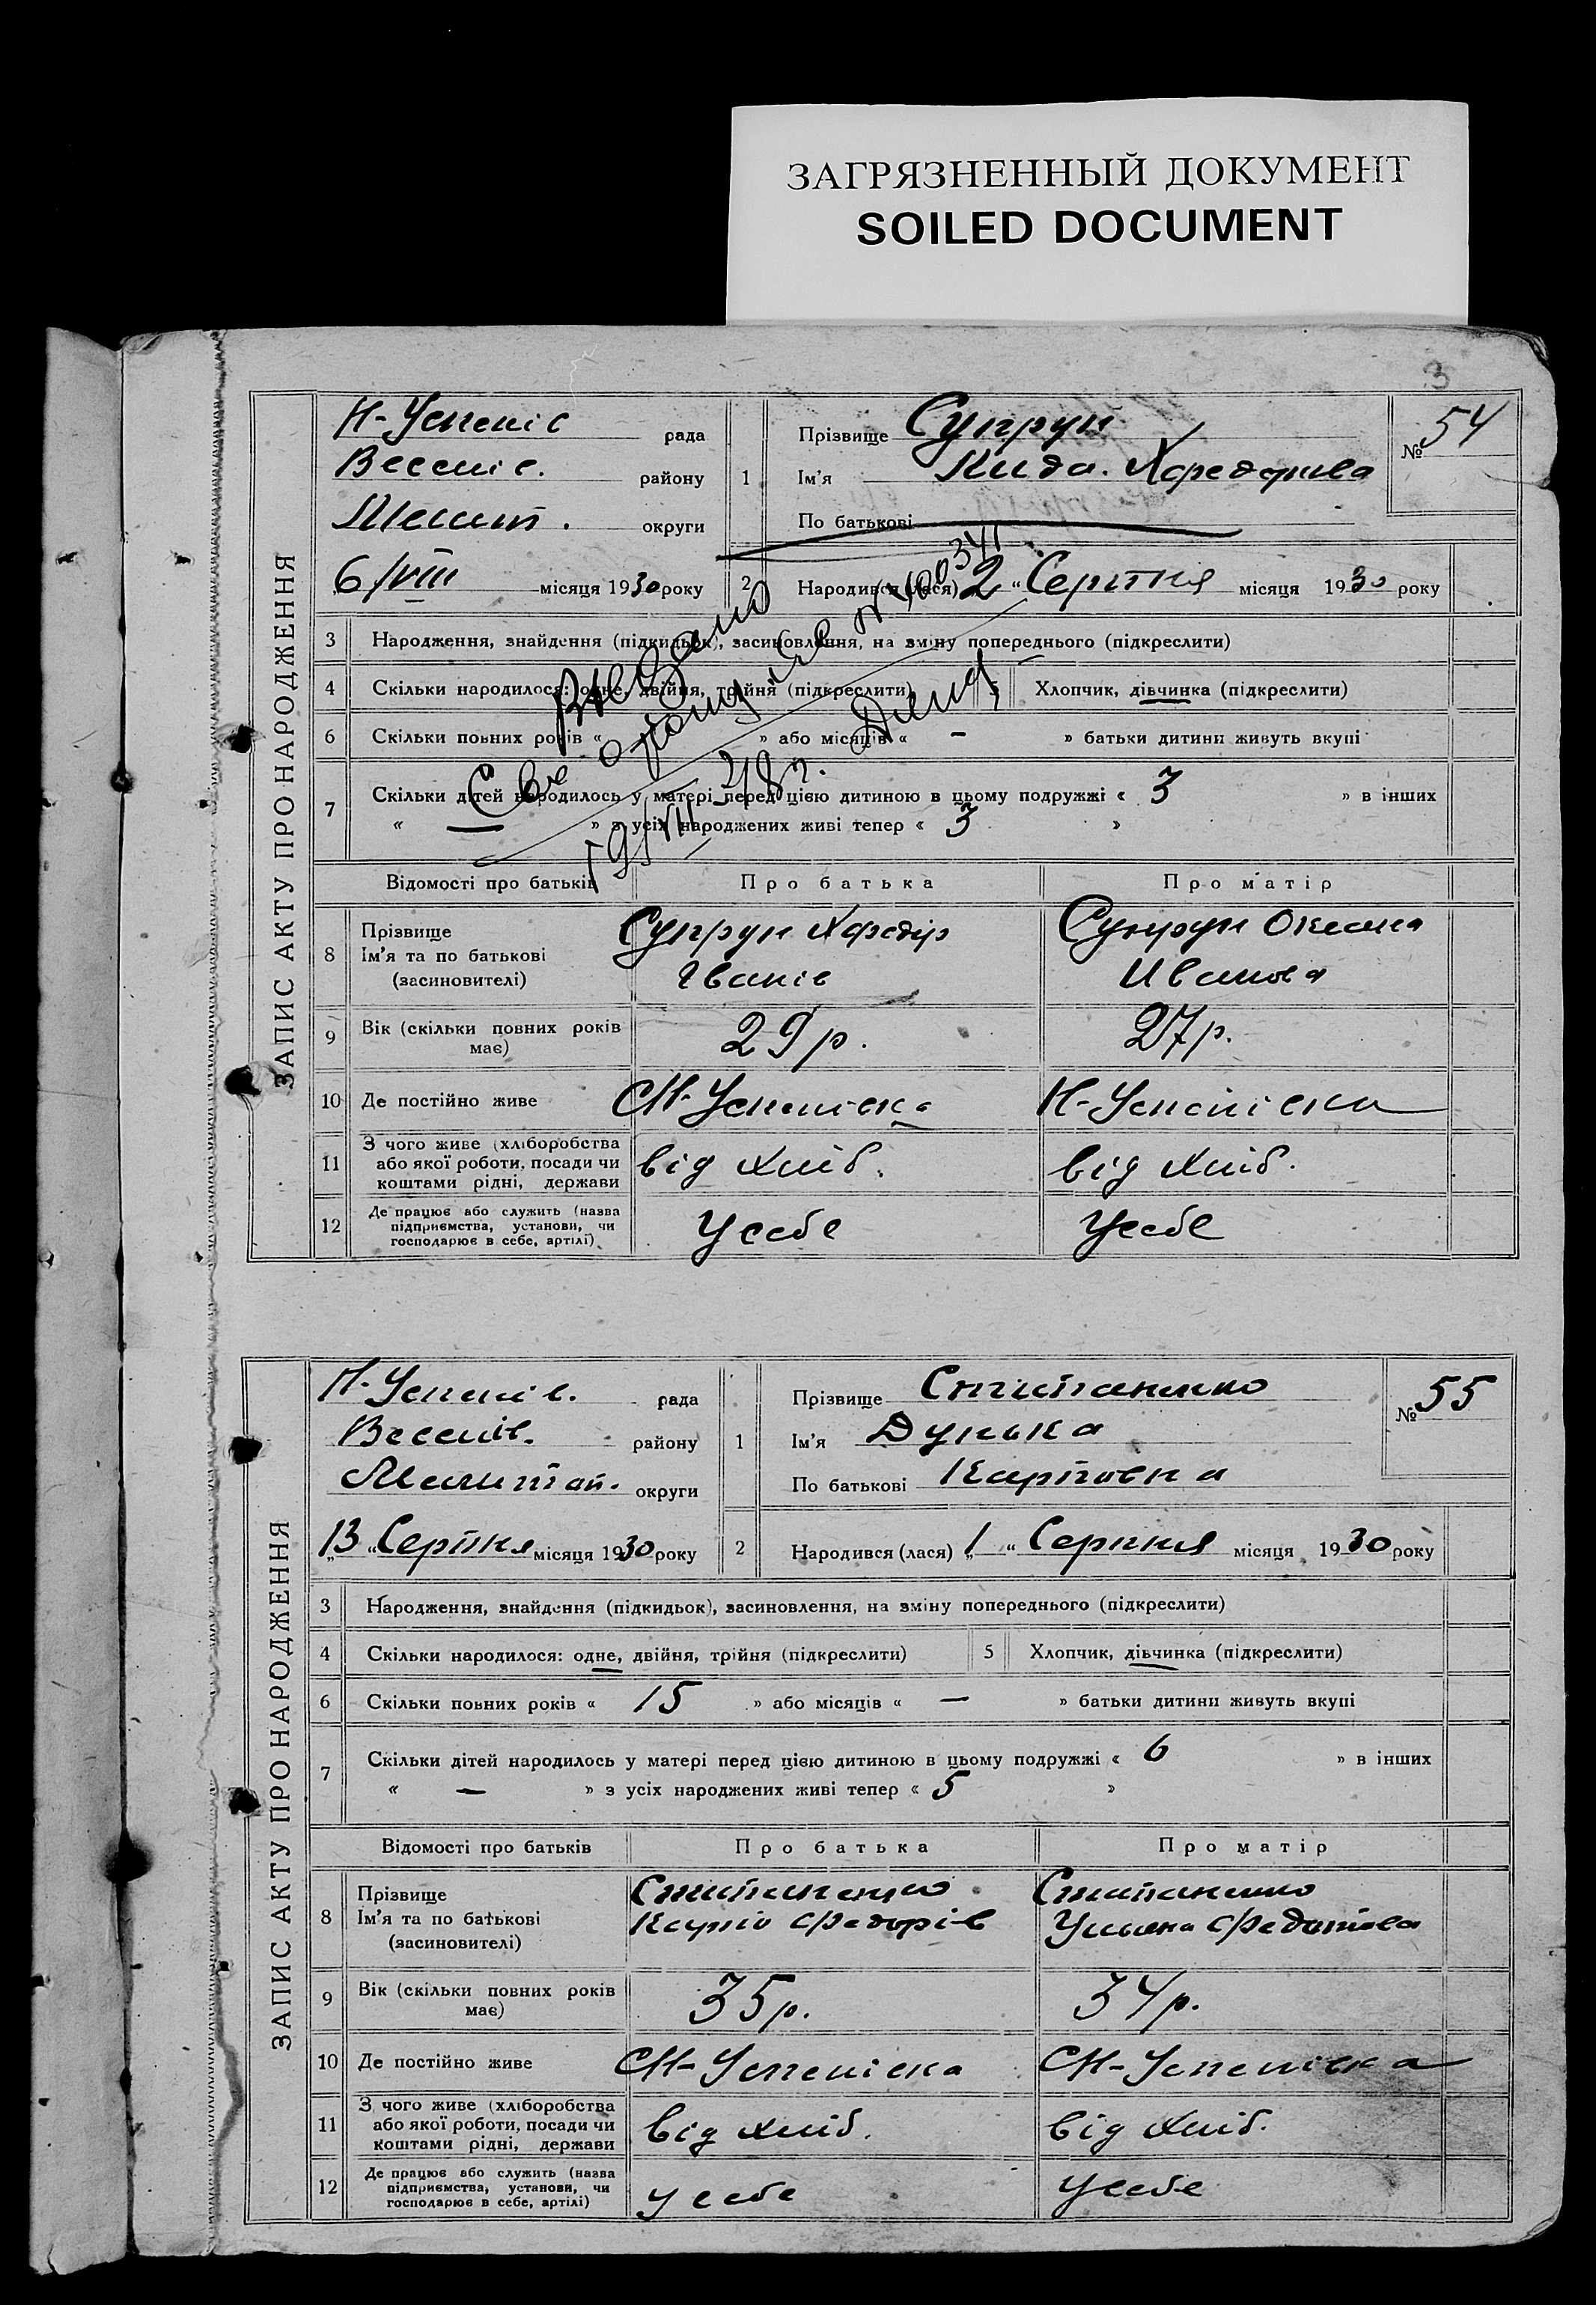 ЗАГРЯЗНЕННЫЙ ДОКУМЕНТ
SOILED DOCUMENT
3
ЗАПИС АКТУ ПРО НАРОДЖЕННЯ
Н-Успенів рада
Веселів. району
Мелит. округи
6/VIII місяця 1930 року
1 Прізвище Супрун
Ім'я Хведорівна
По батькові
№ 54
2 Народився (лася) 2 " Серпня місяця 1930 року
Видано
19/VII-48р.
3 Народження, знайдення (підкидьок), засиновлення, на зміну попереднього (підкреслити)
4 Скільки народилося: одне, двійня, трійня (підкреслити) 5 Хлопчик, дівчинка (підкреслити)
6 Скільки повних років « » або місяців « — » батьки дитини живуть вкупі
7 Скільки дітей народилось у матері перед цією дитиною в цьому подружжі « 3 » в інших
« — » з усіх народжених живі тепер « 3 »
Відомості про батьків Про батька Про матір
8 Прізвище Ім'я та по батькові (засиновителі)
Супрун Хведір Іванів
Супрун Оксана Иванова
9 Вік (скільки повних років має) 29 р. 27 р.
10 Де постійно живе Н-Успенівка Н-Успенівка
11 З чого живе (хліборобства або якої роботи, посади чи коштами рідні, держави
від хліб. від хліб.
12 Де працює або служить (назва підприємства, установи, чи господарює в себе, артілі)
У себе У себе
ЗАПИС АКТУ ПРО НАРОДЖЕННЯ
Н-Успенів. рада
Веселів. району
Мелитоп. округи
„13 "Серпня місяця 1930 року
1 Прізвище Степаненко
Ім'я Дунька
По батькові Карповна
№ 55
2 Народився (лася) „1 " Серпня місяця 1930 року
3 Народження, знайдення (підкидьок), засиновлення, на зміну попереднього (підкреслити)
4 Скільки народилося: одне, двійня, трійня (підкреслити) 5 Хлопчик, дівчинка (підкреслити)
6 Скільки повних років « 15 » або місяців « — » батьки дитини живуть вкупі
7 Скільки дітей народилось у матері перед цією дитиною в цьому подружжі « 6 » в інших
« — » з усіх народжених живі тепер « 5 »
Відомості про батьків Про батька Про матір
8 Прізвище Ім'я та по батькові (засиновителі)
Степаненко Карпо Федорів
Степаненко Ульяна Федотова
9 Вік (скільки повних років має) 35 р. 34 р.
10 Де постійно живе Н-Успенівка Н-Успенівка
11 З чого живе (хліборобства або якої роботи, посади чи коштами рідні, держави
від хліб. від хліб.
12 Де працює або служить (назва підприємства, установи, чи господарює в себе, артілі)
у себе у себе